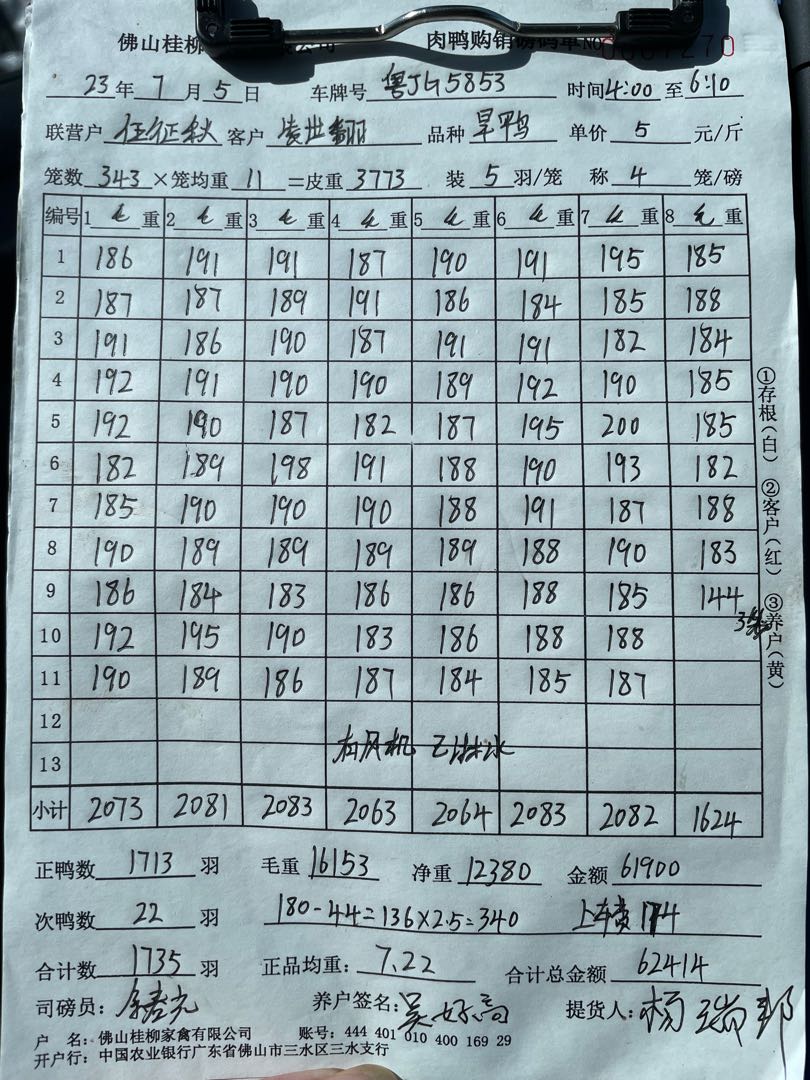 佛山桂柳 肉鸭购销磅码单NO 0007270
23年7月5日 车牌号 粤JG5853 时间4:00至6:10
联营户 伍征秋 客户 品种 旱鸭 单价 5 元/斤
笼数 343 ×笼均重 11 =皮重 3773 装 5 羽/笼 称 4 笼/磅
编号 1 毛 重 2 毛 重 3 毛 重 4 毛 重 5 毛 重 6 毛 重 7 毛 重 8 毛 重
1 186 191 191 187 190 191 195 185
2 187 187 189 191 186 184 185 188
3 191 186 190 187 191 191 182 184
4 192 191 190 190 189 192 190 185
5 192 190 187 182 187 195 200 185
6 182 189 198 191 188 190 193 182
7 185 190 190 190 188 191 187 188
8 190 189 189 189 189 188 190 183
9 186 184 183 186 186 188 185 144
10 192 195 190 183 186 188 188 3笼
11 190 189 186 187 184 185 187
12
有风机 已淋水
13
小计 2073 2081 2083 2063 2064 2083 2082 1624
正鸭数 1713 羽 毛重 16153 净重 12380 金额 61900
次鸭数 22 羽 180-44=136×2.5=340 上车费174
合计数 1735 羽 正品均重: 7.22 合计总金额 62414
司磅员: 养户签名: 吴好高 提货人: 杨瑞邦
户 名: 佛山桂柳家禽有限公司 账号: 444 401 010 400 169 29
开户行: 中国农业银行广东省佛山市三水区三水支行
①存根(白) ②客户(红) ③养户(黄)